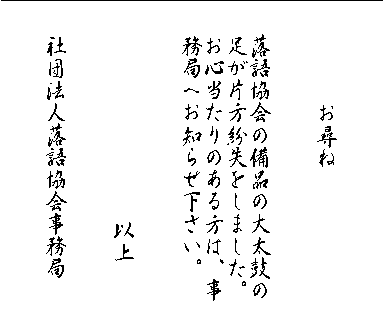 お尋ね
落語協会の備品の大太鼓の
足が片方紛失をしました。
お心当たりのある方は、事
務局へお知らせ下さい。
以上
社団法人落語協会事務局